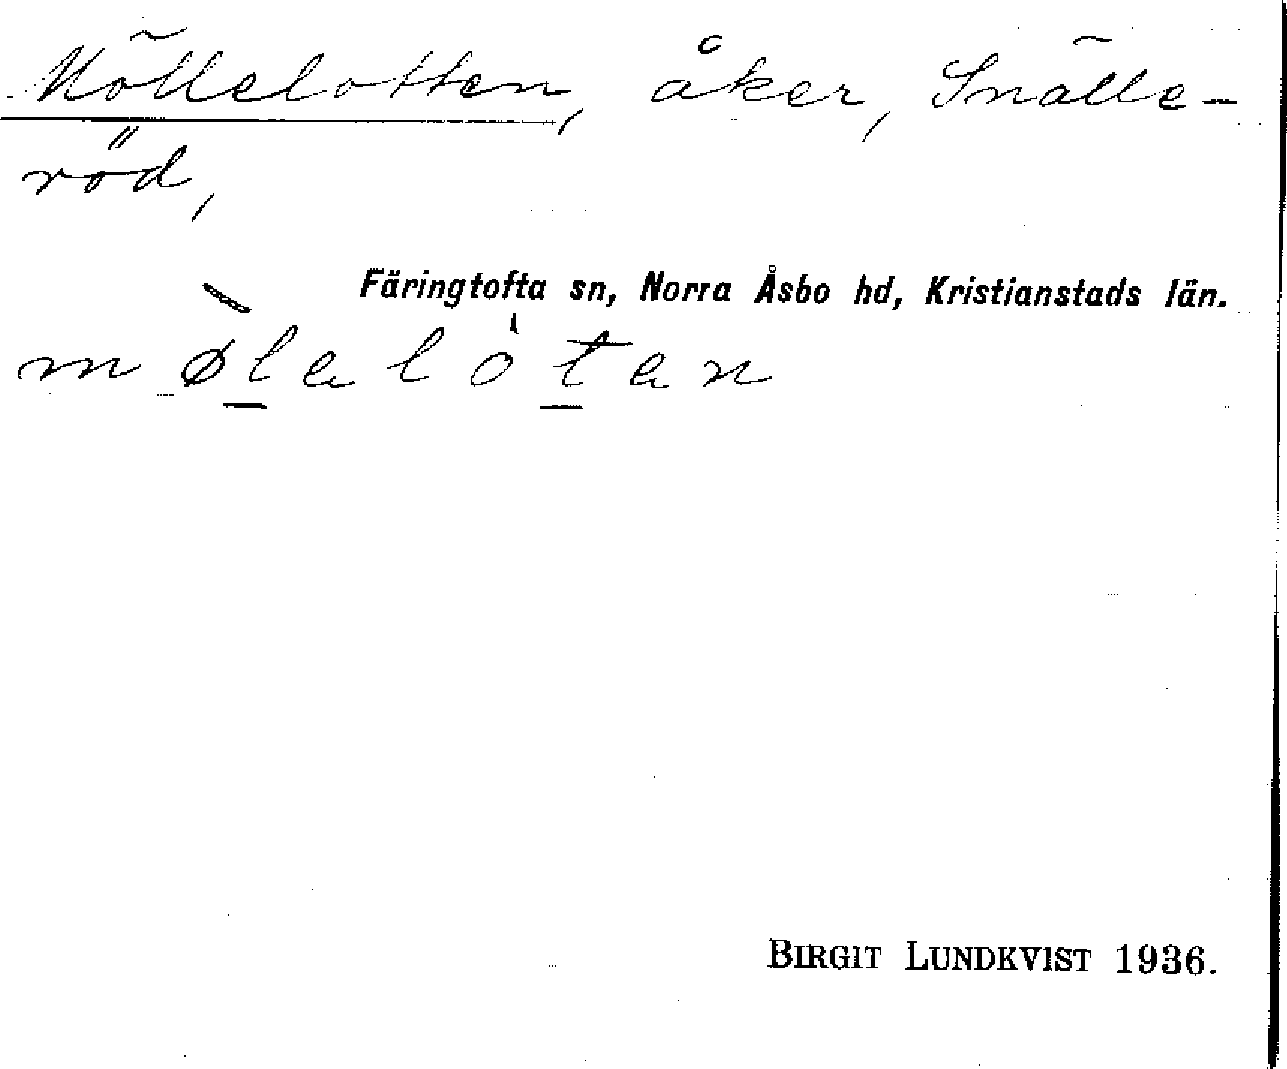 Möllelotten, åker, Snälle-
röd,
Färingtofta sn, Norra Åsbo hd, Kristianstads län.
m ø̀l̲a l ò t̲a n
BIRGIT LUNDKVIST 1936.